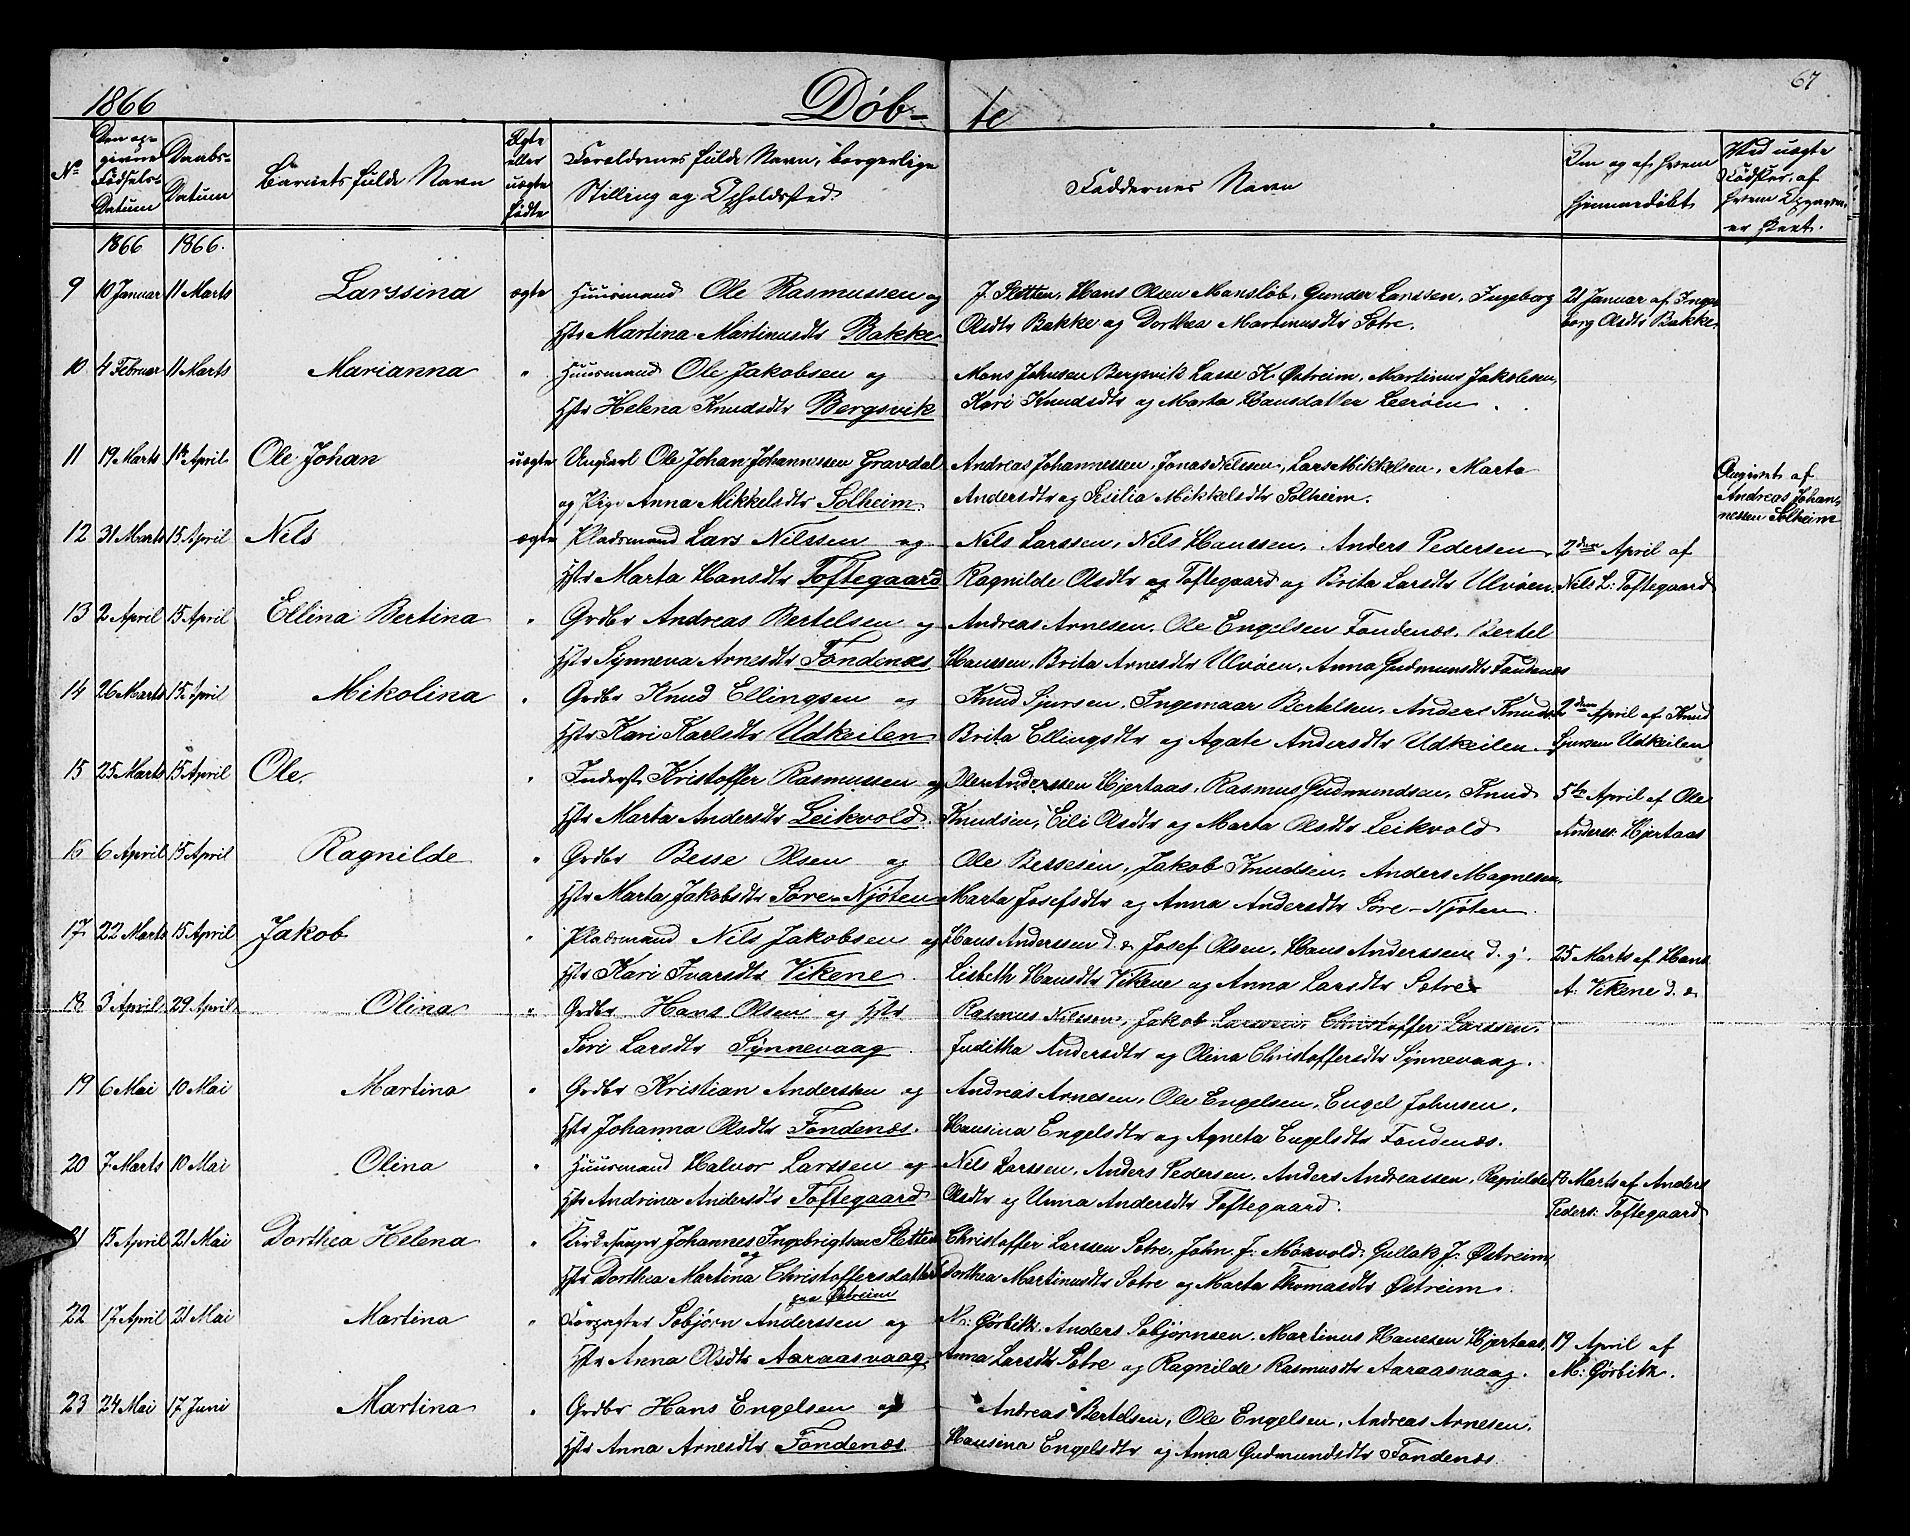 67
1866 Døb- te
No Den opgivne Fødsels-Datum Daabs-Datum Barnets fulde Navn Ægte eller uægte fødte Forældrenes fulde Navn, borgerlige Stilling og Opholdssted. Faddernes Navn Om og af hvem hjemmedøbt Ved uægte Fødsler, af hvem Opgaven er skeet.
1866 1866.
9 10 Januar 11 Marts Larssina ægte Huusmand Ole Rasmussen og J. Sletten, Hans Olsen Mansløb, Gunder Larssen, Ingeborg 21 Januar af Inge-
Hstr Martina Martinusdtr Bakke. Olsdtr Bakke og Dorthea Martinusdtr Sotre. borg Olsdtr Bakke.
10 4 Februar 11 Marts Marianna " Huusmand Ole Jakobsen og Mons Johnsen Bergsvik Lasse K. Østreim, Martinus Jakobsen,
Hstr Helena Knudsdtr Bergsvik Kari Knudsdtr og Marta Hansdatter Leerøen.
11 19 Marts 1ste April Ole Johan uægte Ungkarl Ole Johan Johannssen Gravdal Andreas Johannessen, Jonas Nilssen, Lars Mikkelsen, Marta Angivet af
og Pige Anna Mikkelsdtr Solheim Andersdtr og Sesilia Mikkelsdtr Solheim. Andreas Johan-
nessen Solheim
12 31 Marts 15 April Nils ægte Pladsmand Lars Nilssen og Nils Larssen, Nils Hanssen, Anders Pedersen 2den April af
Hstr Marta Hansdtr Toftegaard Ragnilde Olsdtr og Toftegaard og Brita Larsdtr Ulvøen. Nils L: Toftegaard
13 2 April 15 April Ellina Bertina " Grdbr Andreas Bertelsen og Andreas Arnesen, Ole Engelsen Fondenæs, Bertel
Hstr Synneva Arnesdtr Fondenæs Hanssen, Brita Arnesdtr Ulvøen, Anna Gudmunsdtr Fondenæs
14 26 Marts 15 April Mikolina " Grdbr Knud Ellingsen og Knud Sjursen, Ingemaar Bertelsen, Anders Knuds. 2den April af Knud
Hstr Kari Karlsdtr Udkeilen Brita Ellingsdtr og Agate Andersdtr Udkeilen. Sjursen Udkeilen
15 25 Marts 15 April Ole. " Inderst Kristoffer Rasmussen og Ole Anderssen Hjertaas, Rasmus Gudmundsen, Knud 5te April af Ole
Hstr Marta Andersdtr Leikvold. Knudsen, Eili Olsdtr og Marta Olsdtr Leikvold Anderss: Hjertaas
16 6 April 15 April Ragnilde " Grdbr Besse Olsen og Ole Bessesen, Jakob Knudsen, Anders Magnesen,
Hstr Marta Jakobsdtr Søre-Njøten Marta Josefsdtr og Anna Andersdtr Søre-Njøten.
17 22 Marts 15 April Jakob " Pladsmand Nils Jakobsen og Hans Anderssen d. æ. Josef Olsen, Hans Anderssen d. y. 25 Marts af Hans
Hstr Kari Ivarsdtr Vikene. Lisbeth Hansdtr Vikene og Anna Larsdtr Sotre A: Vikene d. æ
18 3 April 29 April Olina " Grdbr Hans Olsen og Hstr Rasmus Nilssen, Jakob Larssen, Christoffer Larssen,
Siri Larsdtr Synnevaag. Juditha Andersdtr og Olina Christoffersdtr Synnevaag.
19 6 Mai 10 Mai Martina " Grdbr Kristian Anderssen og Andreas Arnesen, Ole Engelsen, Engel Johnsen.
Hstr Johanna Olsdtr Fondenæs. Hansina Engelsdtr og Agneta Engelsdtr Fondenæs.
20 7 Marts 10 Mai Olina " Huusmand Halvor Larssen og Nils Larssen, Anders Pedersen, Anders Andreassen, Ragnilde 13 Marts af Anders
Hstr Andrina Andersdtr Toftegaard Olsdtr og Unna Andersdtr Toftegaard. Peders: Toftegaard
21 15 April 21 Mai Dorthea Helena " Kirkesanger Johannes Ingebrigtsen Sletten Christoffer Larssen Sotre, John J: Moxvold, Gullak J: Østreim,
og
Hstr Dorthea Martina Christoffersdatter Dorthea Martinusdtr Sotre og Marta Thomasdtr Østreim.
paa Østreim
22 17 April 21 Mai Martina " Forpagter Solojørn Anderssen og M: Gørbitz, Anders Solojørnsen, Martinus Hanssen Hjertaas, 19 April af
Hstr Anna Olsdtr Aaraasvaag. Anna Larsdtr Sotre og Ragnilde Rasmusdtr Aaraasvaag. M: Gørbitz.
23 24 Mai 17 Juni Martina " Grdbr Hans Engelsen og Andreas Bertelsen, Ole Engelsen, Andreas Arnesen.
Hstr Anna Arnesdtr Fondenæs Hansina Engelsdtr og Anna Gudmundsdtr Fondenæs.